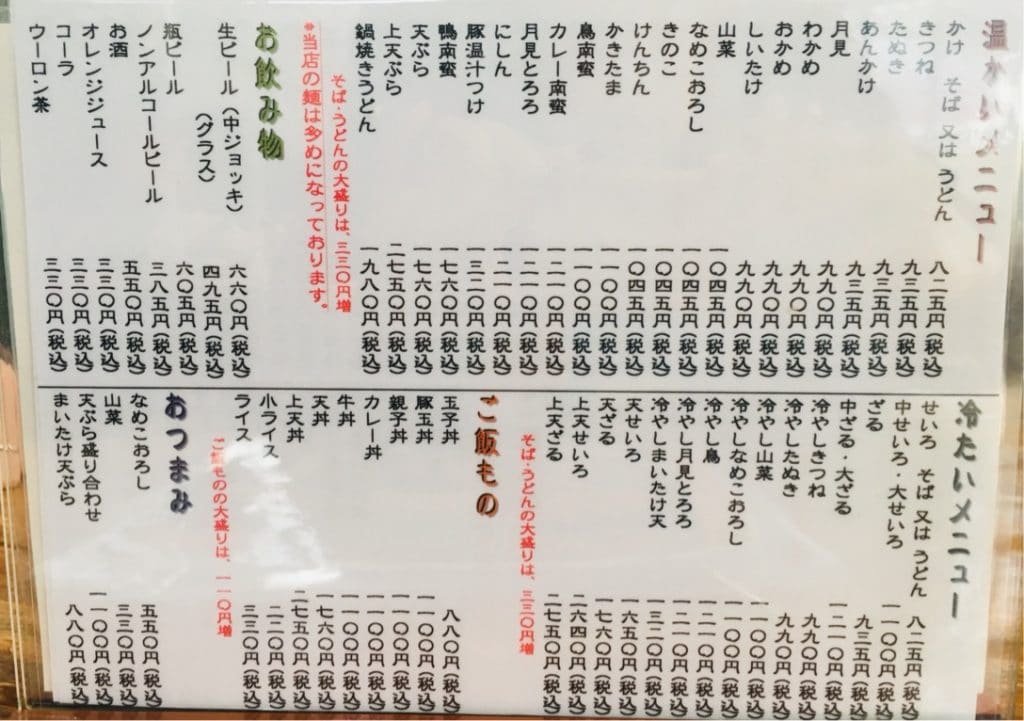 温かいメニュー
かけ そば 又は うどん 八二五円(税込)
きつね 九三五円(税込)
たぬき 九三五円(税込)
あんかけ 九三五円(税込)
月見 九九〇円(税込)
わかめ 九九〇円(税込)
おかめ 九九〇円(税込)
しいたけ 九九〇円(税込)
山菜 一〇四五円(税込)
なめこおろし 一〇四五円(税込)
きのこ 一〇四五円(税込)
けんちん 一〇四五円(税込)
かきたま 一一〇〇円(税込)
鳥南蛮 一一〇〇円(税込)
カレー南蛮 一二一〇円(税込)
月見とろろ 一二一〇円(税込)
にしん 一二一〇円(税込)
豚温汁つけ 一三二〇円(税込)
鴨南蛮 一七六〇円(税込)
天ぷら 一七六〇円(税込)
上天ぷら 二七五〇円(税込)
鍋焼きうどん 一九八〇円(税込)
そば・うどんの大盛りは、三三〇円増
*当店の麺は多めになっております。
お飲み物
生ビール(中ジョッキ) 六六〇円(税込)
(グラス) 四九五円(税込)
瓶ビール 六〇五円(税込)
ノンアルコールビール 三八五円(税込)
お酒 五五〇円(税込)
オレンジジュース 三三〇円(税込)
コーラ 三三〇円(税込)
ウーロン茶 三三〇円(税込)
冷たいメニュー
せいろ そば 又は うどん 八二五円(税込)
中せいろ・大せいろ 一一〇〇円(税込)
ざる 九三五円(税込)
中ざる・大ざる 一二一〇円(税込)
冷やしきつね 九九〇円(税込)
冷やしたぬき 九九〇円(税込)
冷やし山菜 一一〇〇円(税込)
冷やしなめこおろし 一一〇〇円(税込)
冷やし鳥 一二一〇円(税込)
冷やし月見とろろ 一二一〇円(税込)
冷やしまいたけ天 一三二〇円(税込)
天せいろ 一六五〇円(税込)
天ざる 一七六〇円(税込)
上天せいろ 二六四〇円(税込)
上天ざる 二七五〇円(税込)
そば・うどんの大盛りは、三三〇円増
ご飯もの
玉子丼 八八〇円(税込)
豚玉丼 一一〇〇円(税込)
親子丼 一一〇〇円(税込)
カレー丼 一一〇〇円(税込)
牛丼 一一〇〇円(税込)
天丼 一七六〇円(税込)
上天丼 二七五〇円(税込)
小ライス 二二〇円(税込)
ライス 三三〇円(税込)
ご飯ものの大盛りは、一一〇円増
おつまみ
なめこおろし 五五〇円(税込)
山菜 三三〇円(税込)
天ぷら盛り合わせ 一一〇〇円(税込)
まいたけ天ぷら 八八〇円(税込)